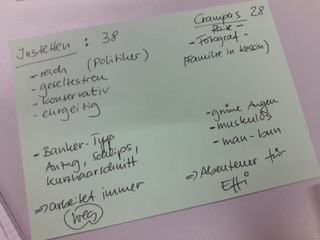 Instetten : 38
- reich (Politiker)
- gesetzestreu
- konservativ
- ehrgeizig
- Banker-Typ
Anzug, Schlips,
Kurzhaarschnitt
⇒ arbeitet immer
weg
Crampas 28
- Fotograf -
(Familie in Kessin)
- grüne Augen
- muskulös
- man-bun
⇒ Abenteuer für
Effi